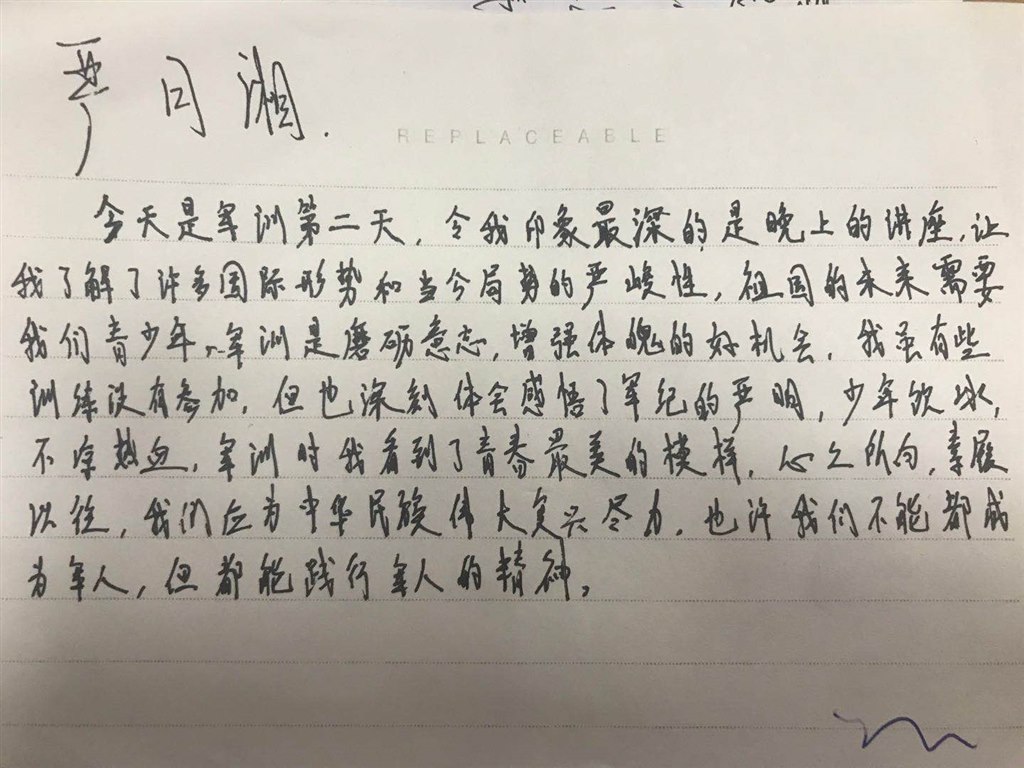 严曰湘.
REPLACEABLE
今天是军训第二天，令我印象最深的是晚上的讲座，让
我了解了许多国际形势和当今局势的严峻性，祖国的未来需要
我们青少年，军训是磨砺意志，增强体魄的好机会，我虽有些
训练没有参加，但也深刻体会感悟了军纪的严明，少年饮冰，
不凉热血，军训时我看到了青春最美的模样，心之所向，素履
以往，我们应为中华民族伟大复兴尽力，也许我们不能都成
为军人，但都能践行军人的精神。